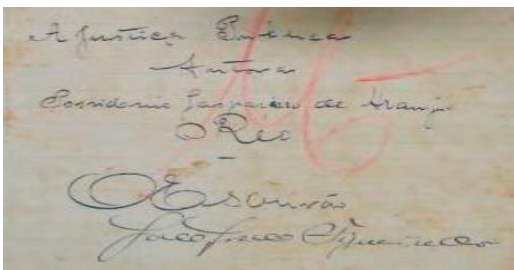 A Justiça Publica
Autora
Possidonio Gaspar de Araujo
O Réo
O Escrivão
Figueiredo